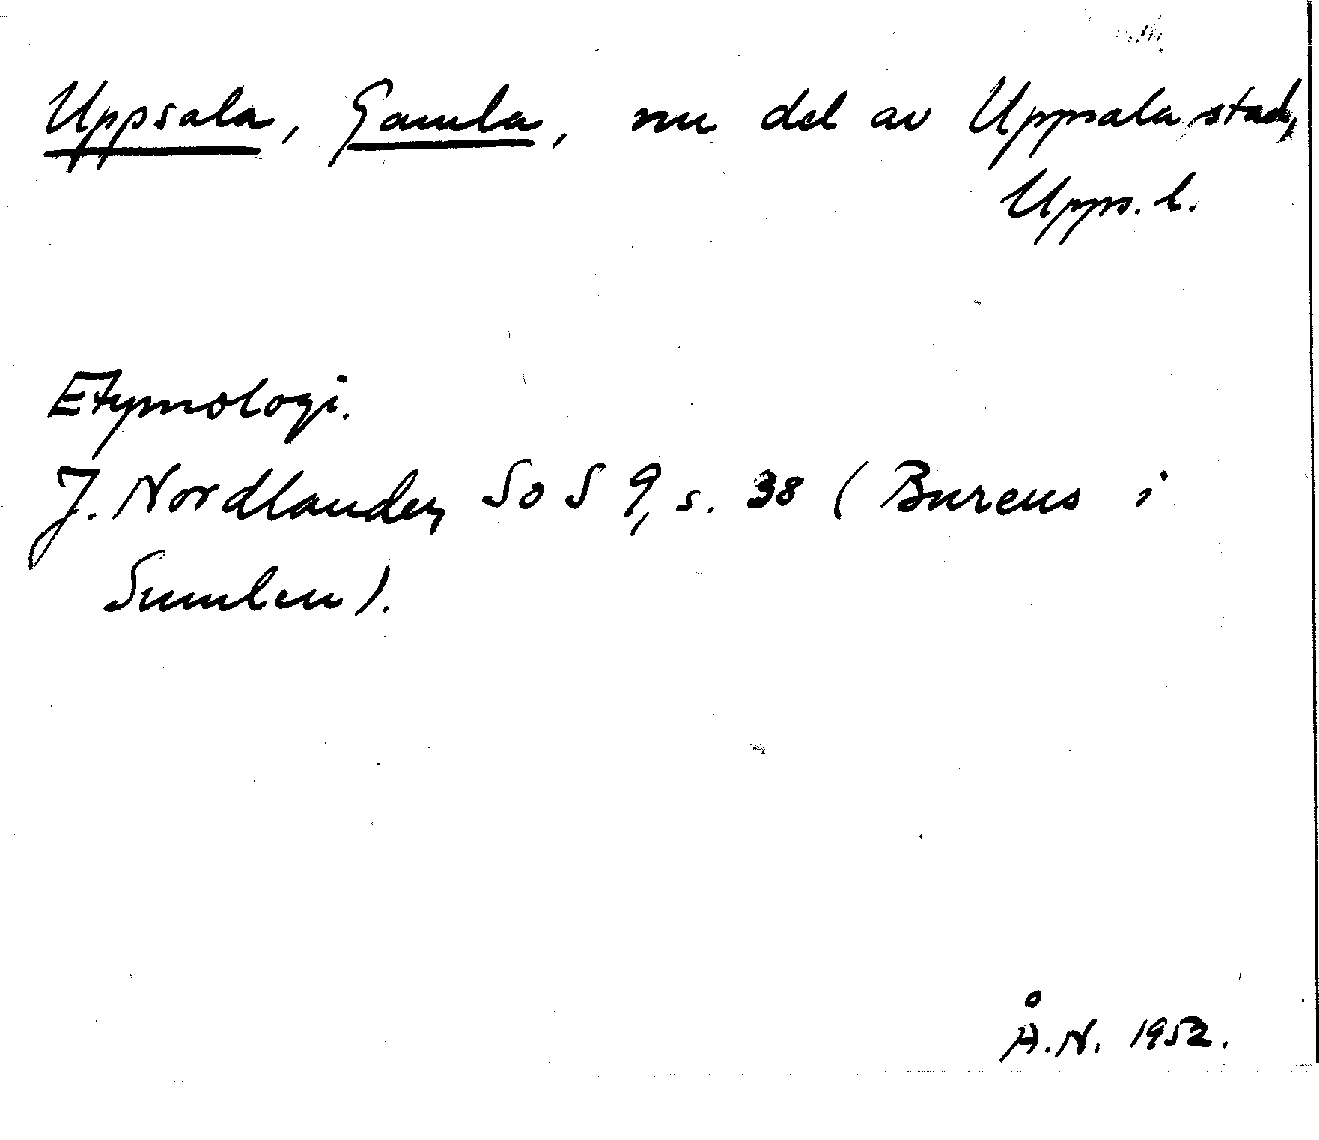 Uppsala, Gamla, nu del av Uppsala stad,
Upps. l.
Etymologi.
J. Nordlander, SoS 9, s. 38 (Bureus i
Sumlen).
Å.N. 1952.